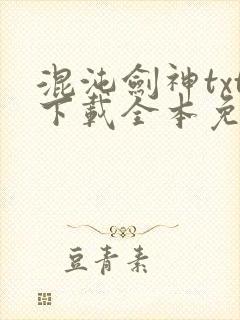 混沌劍神txt
下載全本免
豆青素